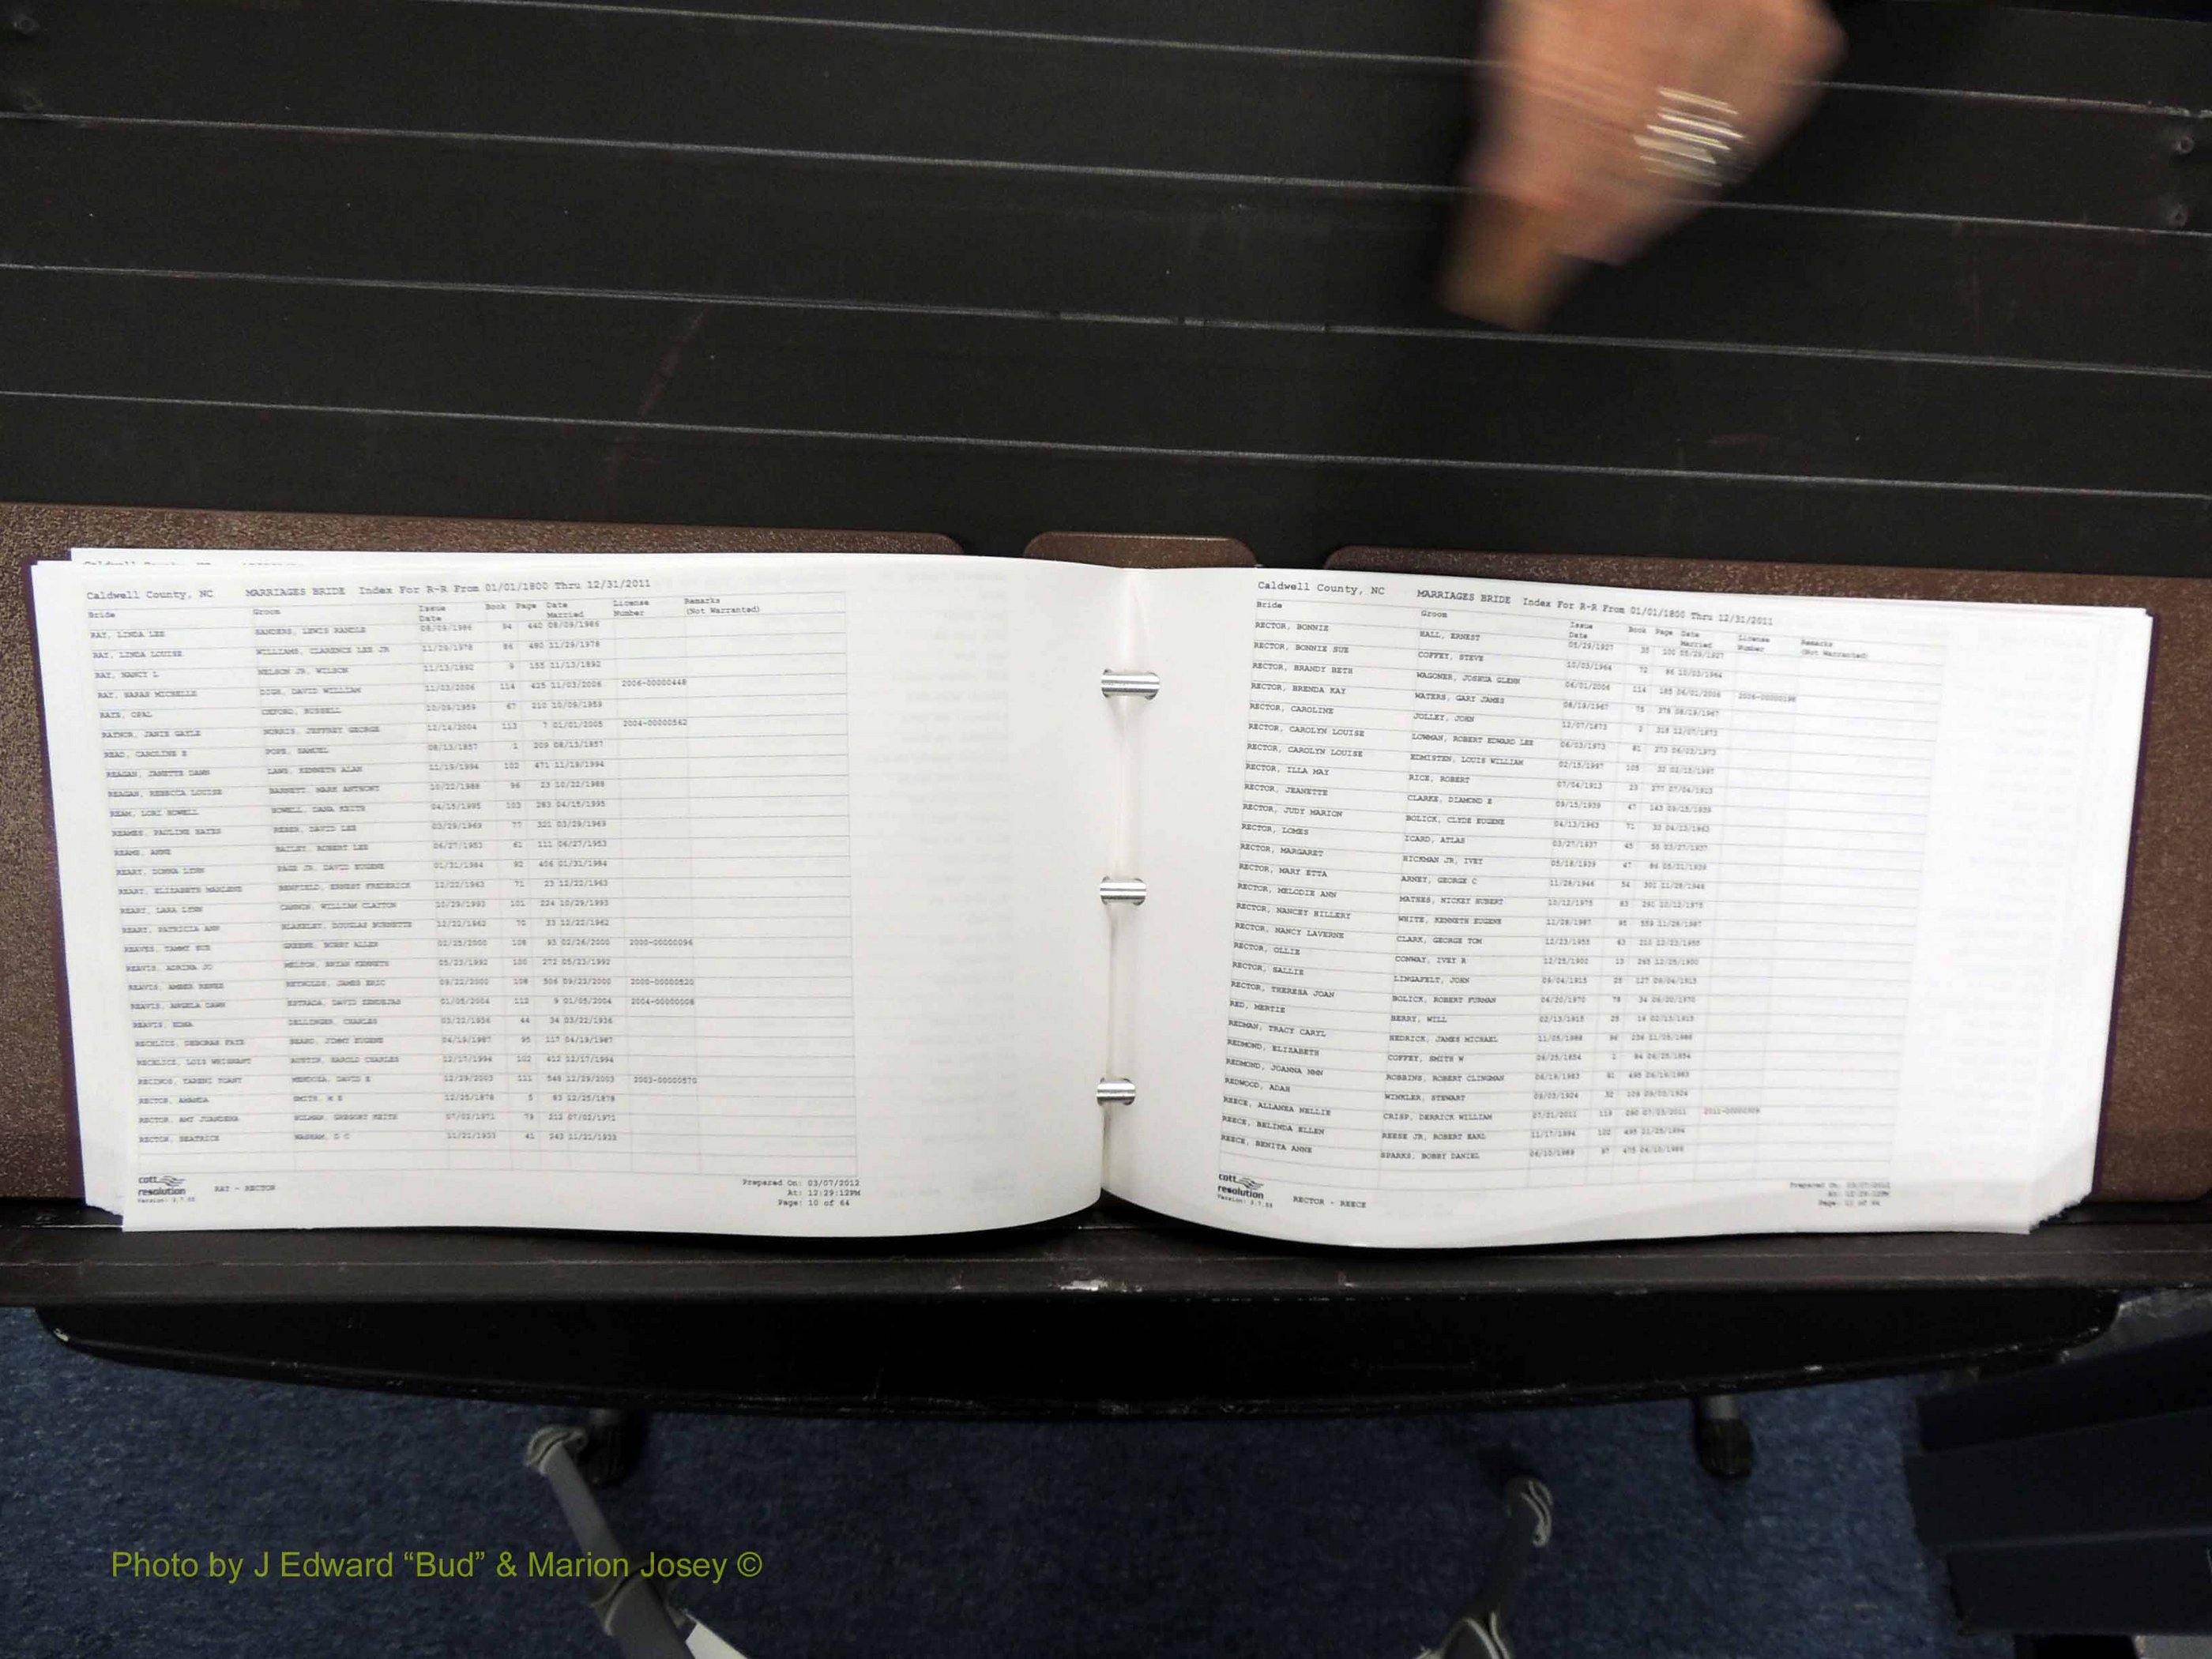 Caldwell County, NC MARRIAGES BRIDE Index For R-R From 01/01/1800 Thru 12/31/2011
Bride Groom Issue Date Book Page Date Married License Number Remarks (Not Warranted)
RAY, LINDA LEE SANDERS, LEWIS RANDLE 08/09/1986 94 440 08/09/1986
RAY, LINDA LOUISE WILLIAMS, CLARENCE LEE JR 11/29/1978 86 490 11/29/1978
RAY, NANCY L NELSON JR, WILSON 11/13/1892 9 155 11/13/1892
RAY, SARAH MICHELLE DAVID WILLIAM 11/03/2006 114 425 11/03/2006 2006-00000448
RAYE, OPAL OXFORD, RUSSELL 10/09/1959 67 210 10/09/1959
RAYNOR, JANIE GAYLE NORRIS, JEFFREY GEORGE 12/14/2004 113 7 01/01/2005 2004-00000562
READ, CAROLINE E POPE, SAMUEL 08/13/1857 1 209 08/13/1857
REAGAN, JANETTE DAWN LAWS, KENNETH ALAN 11/19/1994 102 471 11/19/1994
REAGAN, REBECCA LOUISE BARNETT, MARK ANTHONY 10/22/1988 96 23 10/22/1988
REAM, LORI HOWELL HOWELL, DANA KEITH 04/15/1995 103 283 04/15/1995
REAMES, PAULINE BATES REBER, DAVID LEE 03/29/1969 77 321 03/29/1969
REAMS, ANNE BAILEY, ROBERT LEE 06/27/1953 61 111 06/27/1953
REART, DONNA LYNN PAGE JR, DAVID EUGENE 01/31/1984 92 406 01/31/1984
REART, ELIZABETH MARLENE BENFIELD, ERNEST FREDERICK 12/22/1963 71 23 12/22/1963
REART, LARA LYNN CANNON, WILLIAM CLAYTON 10/29/1993 101 224 10/29/1993
REART, PATRICIA ANN BLAKELEY, DOUGLAS BURNETTE 12/22/1962 70 33 12/22/1962
REAVES, TAMMY SUE GREENE, BOBBY ALLEN 02/25/2000 108 93 02/26/2000 2000-00000096
REAVIS, ADRINA JO MELTON, BRIAN KENNETH 05/23/1992 100 272 05/23/1992
REAVIS, AMBER RENEE REYNOLDS, JAMES ERIC 09/22/2000 108 506 09/23/2000 2000-00000520
REAVIS, ANGELA DAWN ESTRADA, DAVID 01/05/2004 112 9 01/05/2004 2004-00000006
REAVIS, EDNA DELLINGER, CHARLES 03/22/1936 44 34 03/22/1936
DEBORAH FAYE BEARD, JIMMY EUGENE 04/19/1987 95 117 04/19/1987
LOIS AUSTIN, HAROLD CHARLES 12/17/1994 102 412 12/17/1994
RECINOS, MENDOZA, DAVID E 12/29/2003 111 548 2003-00000570
RECTOR, AMANDA SMITH, 12/25/1878 5 83 12/25/1878
RECTOR, AMY JUANDENA HOLMAN, GREGORY KEITH 07/02/1971 79 212 07/02/1971
RECTOR, BEATRICE WAGRAM, D C 11/21/1933 41 243 11/21/1933
cott resolution
RAY - RECTOR
Prepared On: 03/07/2012
At: 12:29:12PM
Page: 10 of 64
Caldwell County, NC MARRIAGES BRIDE Index For R-R From 01/01/1800 Thru 12/31/2011
Bride Groom Issue Date Book Page Date Married License Number Remarks (Not Warranted)
RECTOR, BONNIE HALL, ERNEST 05/29/1927 35 100 05/29/1927
RECTOR, BONNIE SUE COFFEY, STEVE 10/03/1964 72 86 10/03/1964
RECTOR, BRANDY BETH WAGONER, JOSHUA GLENN 06/01/2006 114 185 06/01/2006
RECTOR, BRENDA KAY WATERS, GARY JAMES 08/19/1967 75 378 08/19/1967
RECTOR, CAROLINE JOLLEY, JOHN 12/07/1873 2 318 12/07/1873
RECTOR, CAROLYN LOUISE LOWMAN, ROBERT EDWARD LEE 06/03/1973 81 273 06/03/1973
RECTOR, CAROLYN LOUISE EDMISTEN, LOUIS WILLIAM 02/15/1997 105 32 02/15/1997
RECTOR, ILLA MAY RICE, ROBERT 07/04/1913 23 277 07/04/1913
RECTOR, JEANETTE CLARKE, DIAMOND E 09/15/1939 47 143 09/15/1939
RECTOR, JUDY MARION BOLICK, CLYDE EUGENE 04/13/1963 71 33 04/13/1963
RECTOR, LOMES ICARD, ATLAS 03/27/1937 45 55 03/27/1937
RECTOR, MARGARET HICKMAN JR, IVEY 05/18/1939 47 86 05/21/1939
RECTOR, MARY ETTA ARNEY, GEORGE C 11/28/1946 54 301 11/28/1946
RECTOR, MELODIE ANN MATHES, RICKEY HUBERT 10/12/1975 83 10/12/1975
RECTOR, NANCEY HILLERY WHITE, KENNETH EUGENE 11/28/1987 95 559 11/28/1987
RECTOR, NANCY LAVERNE CLARK, GEORGE TOM 12/23/1955 63 210 12/23/1955
RECTOR, OLLIE CONWAY, IVEY R 12/25/1900 13 265 12/25/1900
RECTOR, SALLIE LINGAFELT, JOHN 09/04/1915 25 127 09/04/1915
RECTOR, THERESA JOAN BOLICK, ROBERT FURMAN 06/20/1970 78 34 06/20/1970
RED, MERTIE BERRY, WILL 02/13/1915 25 16 02/13/1915
REDMAN, TRACY CARYL HEDRICK, JAMES MICHAEL 11/05/1988 96 236 11/05/1988
REDMOND, ELIZABETH COFFEY, SMITH W 06/25/1854 1 84 06/25/1854
REDMOND, JOANNA NMN ROBBINS, ROBERT CLINGMAN 06/19/1983 91 495 06/19/1983
REDWOOD, ADAH WINKLER, STEWART 09/03/1924 32 109 09/03/1924
REECE, ALLANEA NELLIE CRISP, DERRICK WILLIAM 07/21/2011 119 2011-00000309
REECE, BELINDA ELLEN REESE JR, ROBERT EARL 11/17/1994 102 495
REECE, BENITA ANNE SPARKS, BOBBY DANIEL 06/10/1989 97 475 06/10/1989
cott resolution
RECTOR - REECE
Photo by J Edward “Bud” & Marion Josey ©